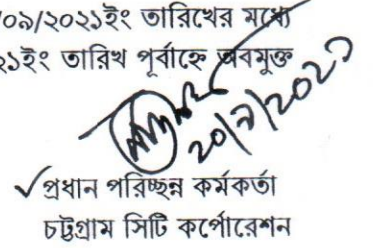 /০৯/২০২১ইং তারিখের মধ্যে
২১ইং তারিখ পূর্বাহ্নে অবমুক্ত
২০/৯/২০২১
প্রধান পরিচ্ছন্ন কর্মকর্তা
চট্টগ্রাম সিটি কর্পোরেশন